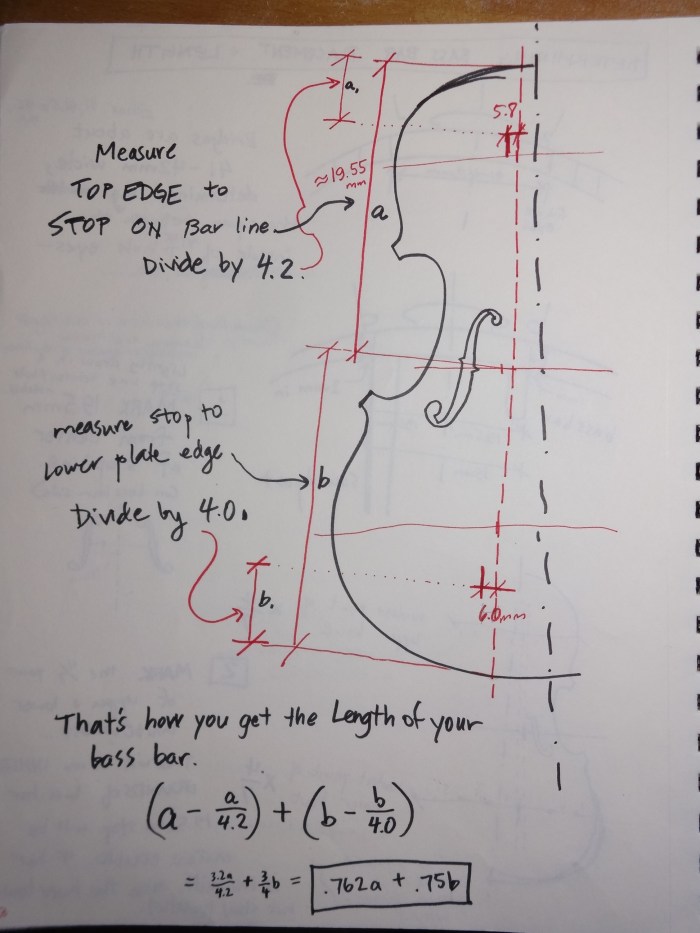 a₁
5.8
Measure
TOP EDGE to
STOP ON Bar line
Divide by 4.2.
≈19.55
mm
a
measure stop to
lower plate edge
Divide by 4.0.
b
b₁
6.0mm
That's how you get the Length of your
bass bar.
(a - a/4.2) + (b - b/4.0)
= 3.2a/4.2 + 3/4 b = .762a + .75b